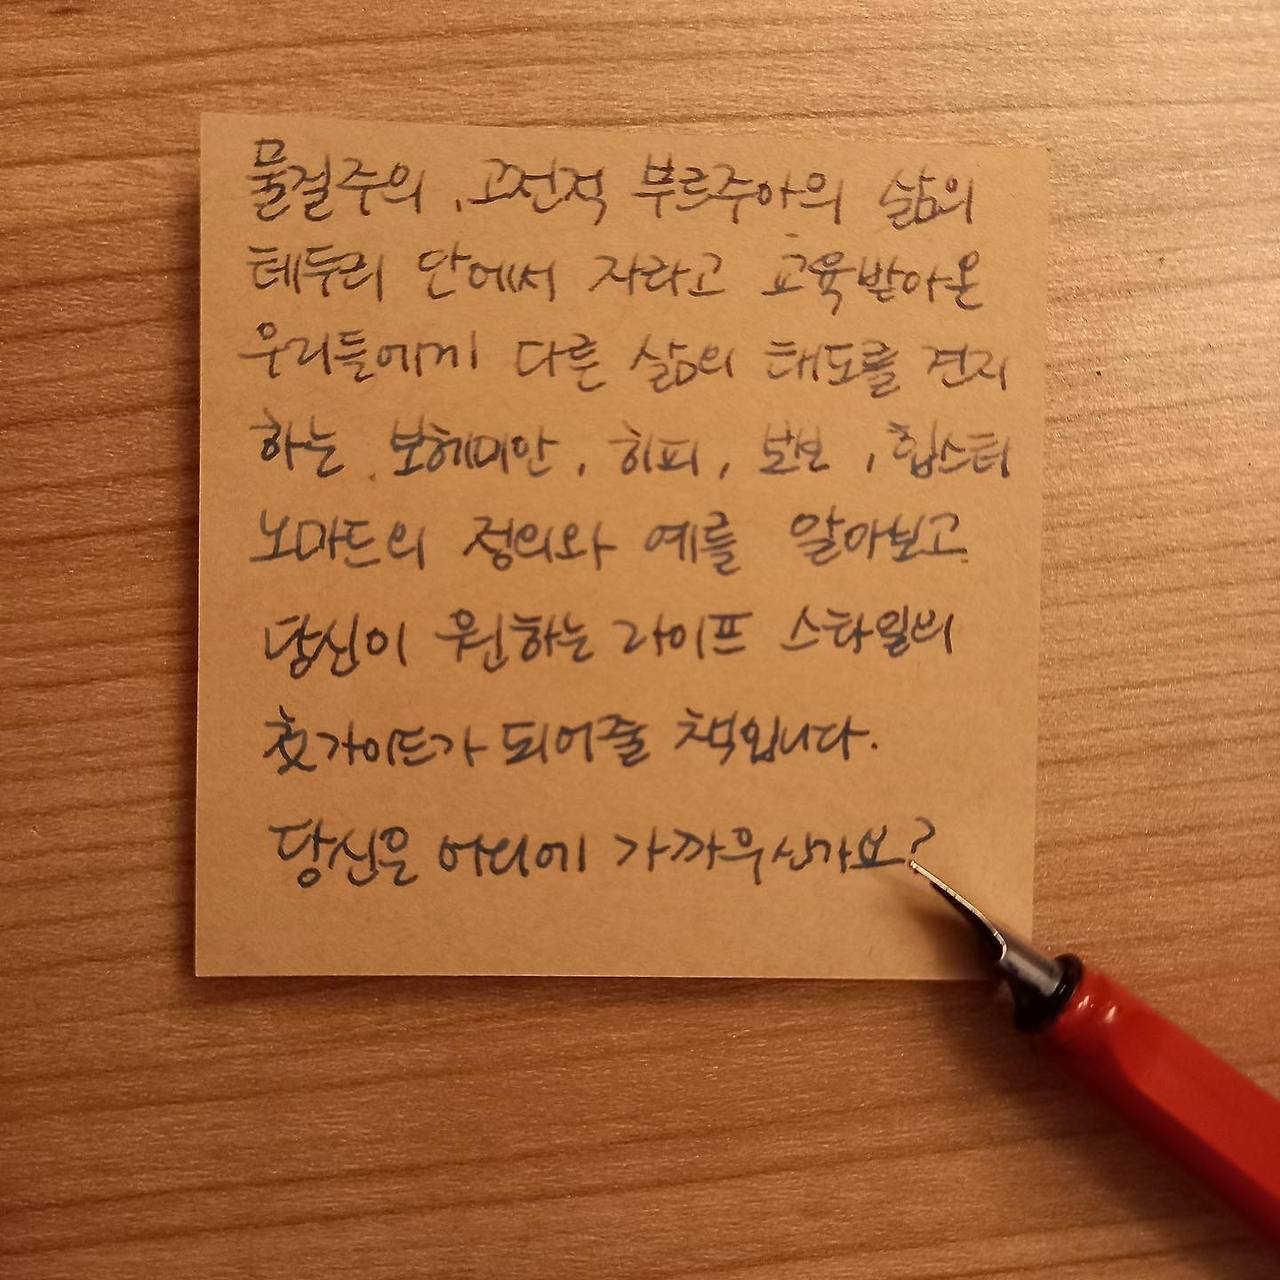 물질주의, 고전적 부르주아의 삶의
테두리 안에서 자라고 교육받아온
우리들에게 다른 삶의 태도를 견지
하는 보헤미안, 히피, 보보, 힙스터
노마드의 정의와 예를 알아보고
당신이 원하는 라이프 스타일의
첫가이드가 되어줄 책입니다.
당신은 어디에 가까우신가요?